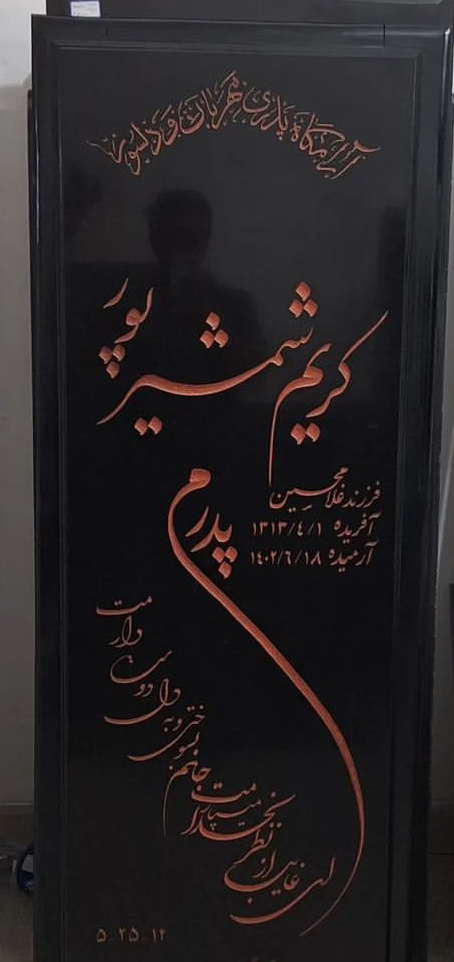 آرامگاه پدری مهربان و دلسوز
کریم شمشیرپور
فرزند غلامحسین
آفریده ۱۳۱۳/٤/۱
آرمیده ۱٤۰۲/٦/۱۸
پدرم
ای غایب از نظر بخدا میسپارمت
جانم بسوختی و به دل دوست دارمت
۵-۲۵-۱۲